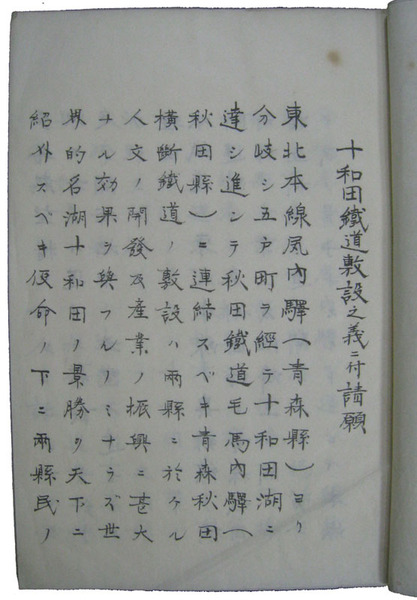 十和田鐵道敷設之義ニ付請願
東北本線尻内驛(青森縣)ヨリ
分岐シ五戸町ヲ經テ十和田湖ニ
達シ進ンテ秋田鐵道毛馬内驛(
秋田縣)ニ連結スベキ青森秋田
横斷鐵道ノ敷設ハ兩縣ニ於ケル
人文ノ開發及産業ノ振興ニ甚大
ナル効果ヲ與フルノミナラズ世
界的名湖十和田ノ景勝ヲ天下ニ
紹介スベキ使命ノ下ニ兩縣民ノ